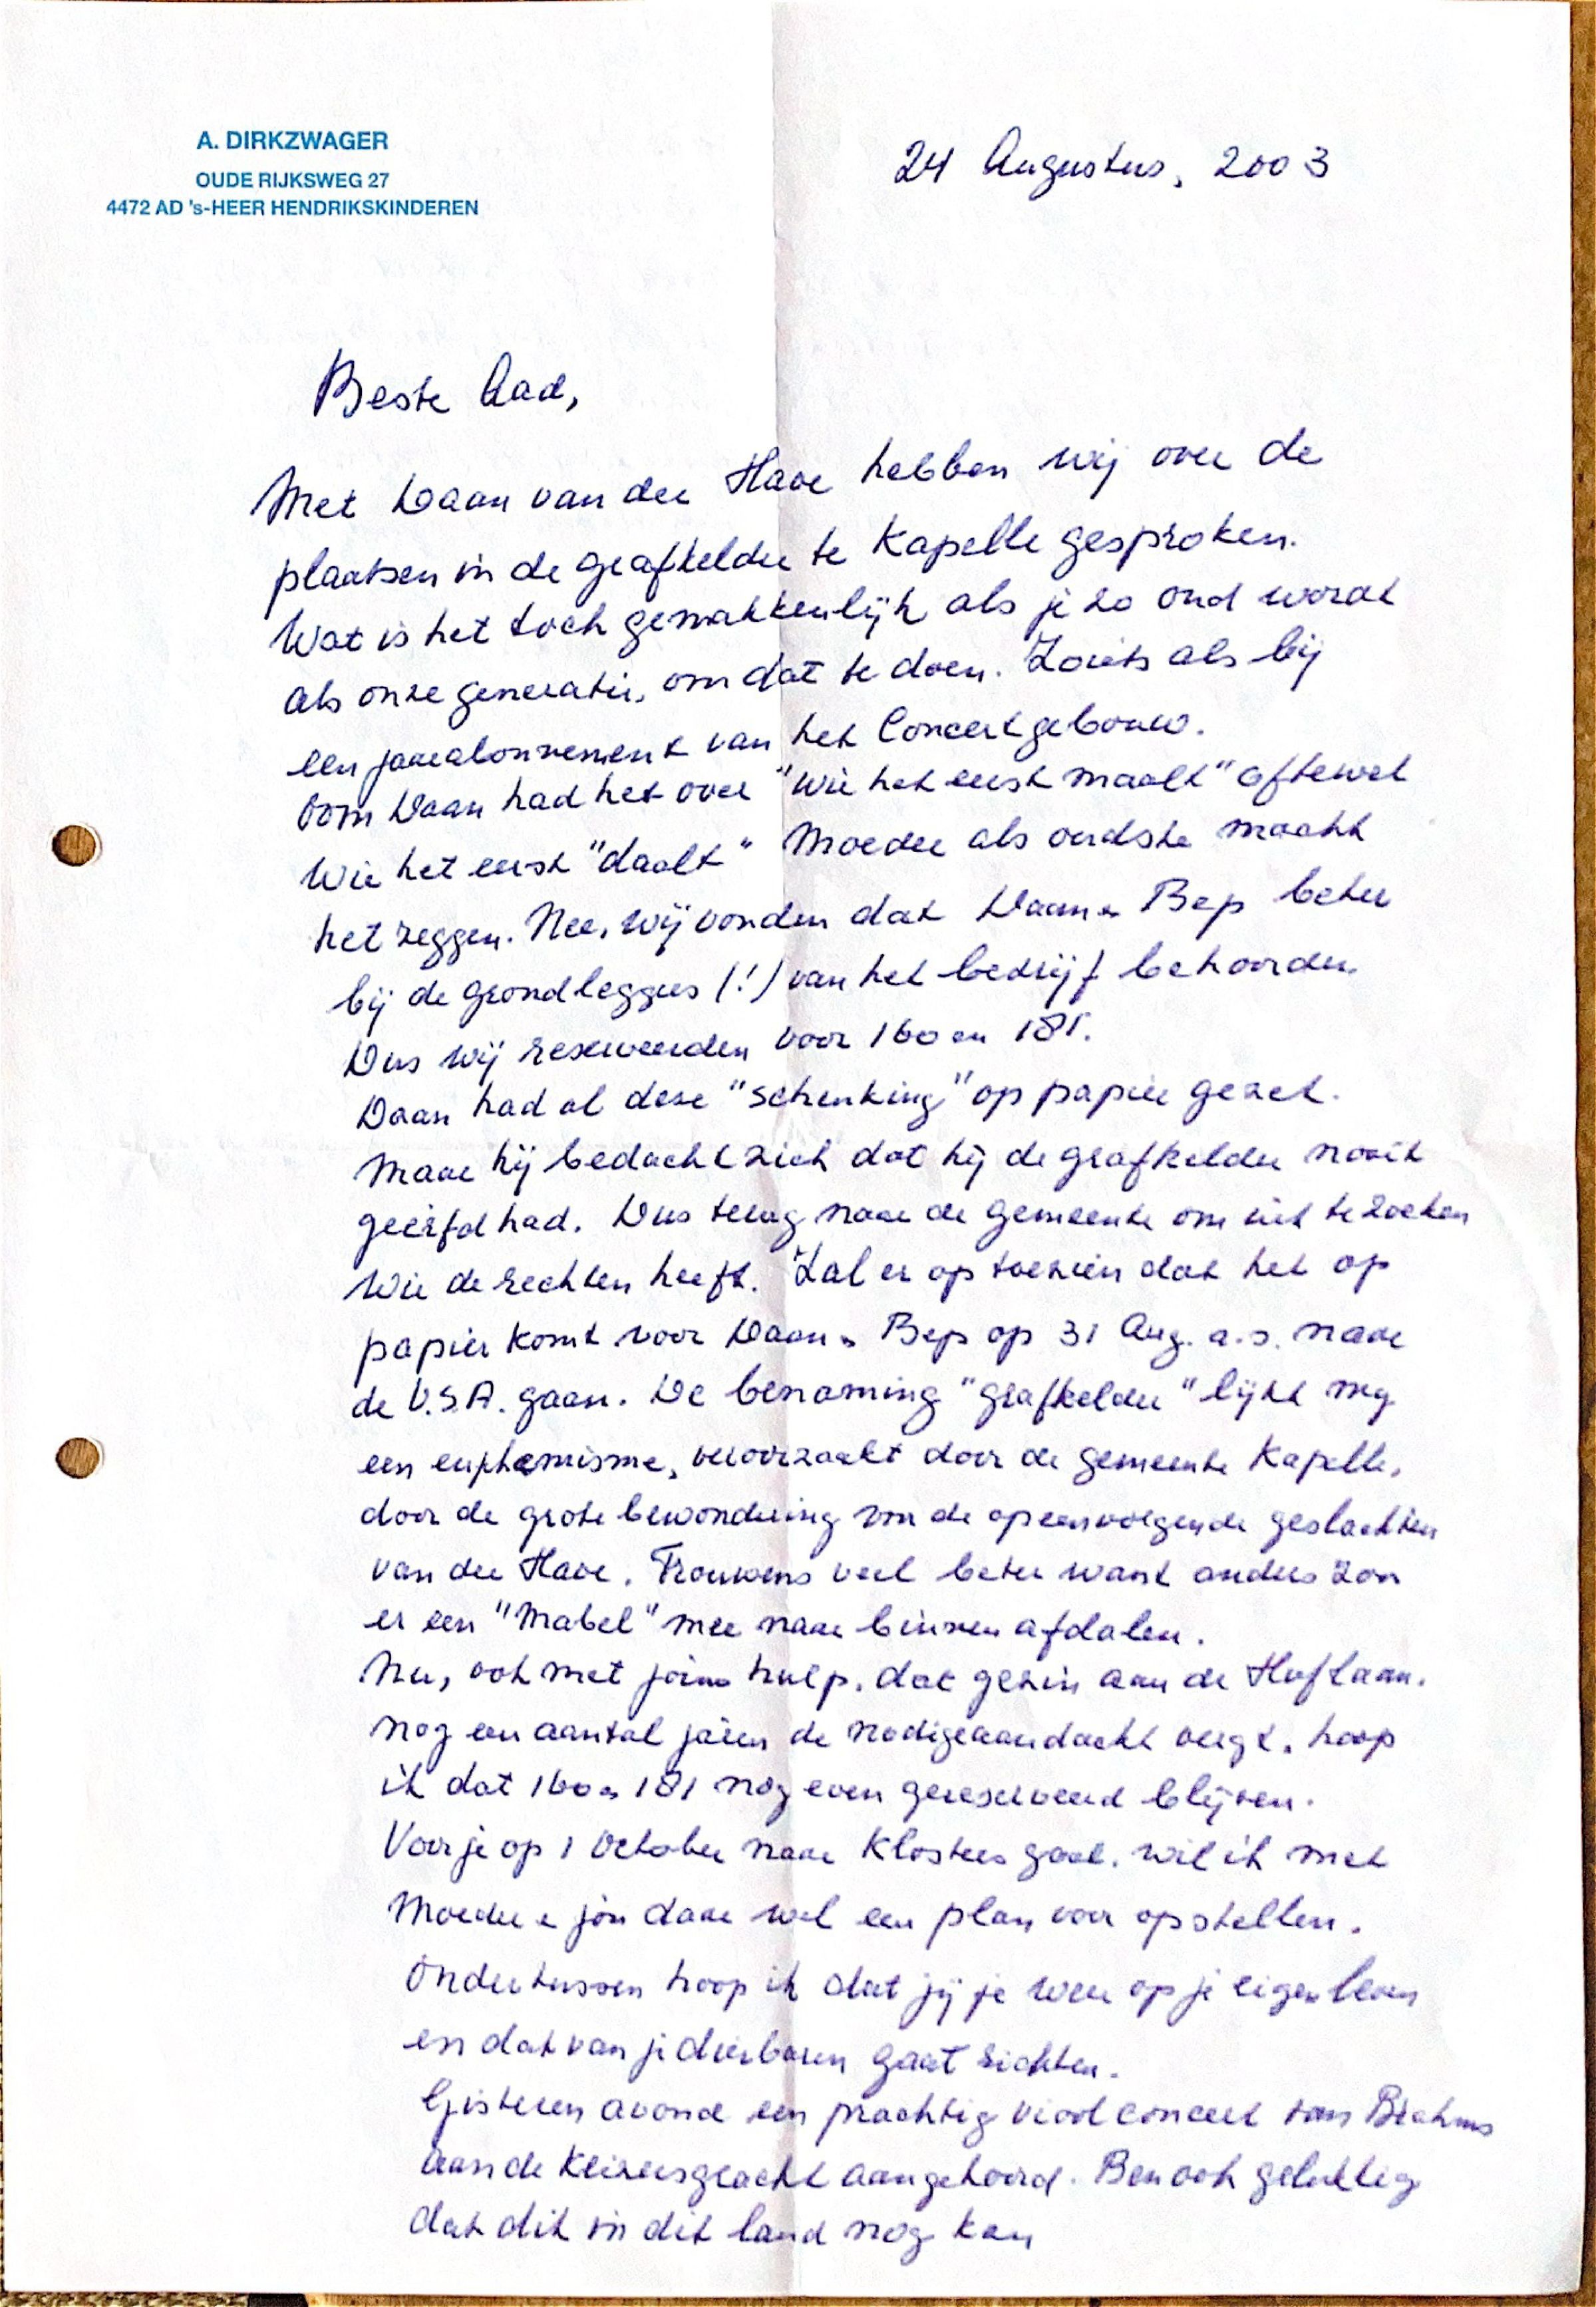 A. DIRKZWAGER
OUDE RIJKSWEG 27
4472 AD 's-HEER HENDRIKSKINDEREN
24 Augustus, 2003
Beste Aad,
Met Daan van der Have hebben wij over de
plaatsen in de grafkelder te Kapelle gesproken.
Wat is het toch gemakkenlijk als je zo oud wordt
als onze generatie, om dat te doen. Zoiets als bij
een jaarabonnement van het Concertgebouw.
Oom Daan had het over "wie het eerst maalt" oftewel
wie het eerst "daalt" Moeder als oudste mocht
het zeggen. Nee, wij vonden dat Daan & Bep beter
bij de grondleggers (!) van het bedrijf behoorden.
Dus wij reserveerden voor 160 en 181.
Daan had al deze "schenking" op papier gezet.
Maar hij bedacht zich dat hij de grafkelder nooit
geërfd had. Dus terug naar de gemeente om uit te zoeken
wie de rechten heeft. Zal er op toezien dat het op
papier komt voor Daan & Bep op 31 Aug. a.s. naar
de U.S.A. gaan. De benaming "grafkelder" lijkt mij
een euphemisme, veroorzaakt door de gemeente Kapelle,
door de grote bewondering van de opeenvolgende geslachten
van der Have. Trouwens veel beter want anders zou
er een "Mabel" mee naar binnen afdalen.
Nu, ook met jouw hulp, dat gezin aan de Hoflaan,
nog een aantal jaren de nodige aandacht vergt, hoop
ik dat 160 & 181 nog even gereserveerd blijven.
Voor je op 1 October naar Klosters gaat, wil ik met
Moeder & jou daar wel een plan voor opstellen.
Ondertussen hoop ik dat jij je weer op je eigen leven
en dat van je dierbaren gaat richten.
Gisteren avond een prachtig vioolconcert van Brahms
aan de Keizersgracht aangehoord. Ben ook gelukkig
dat dit in dit land nog kan